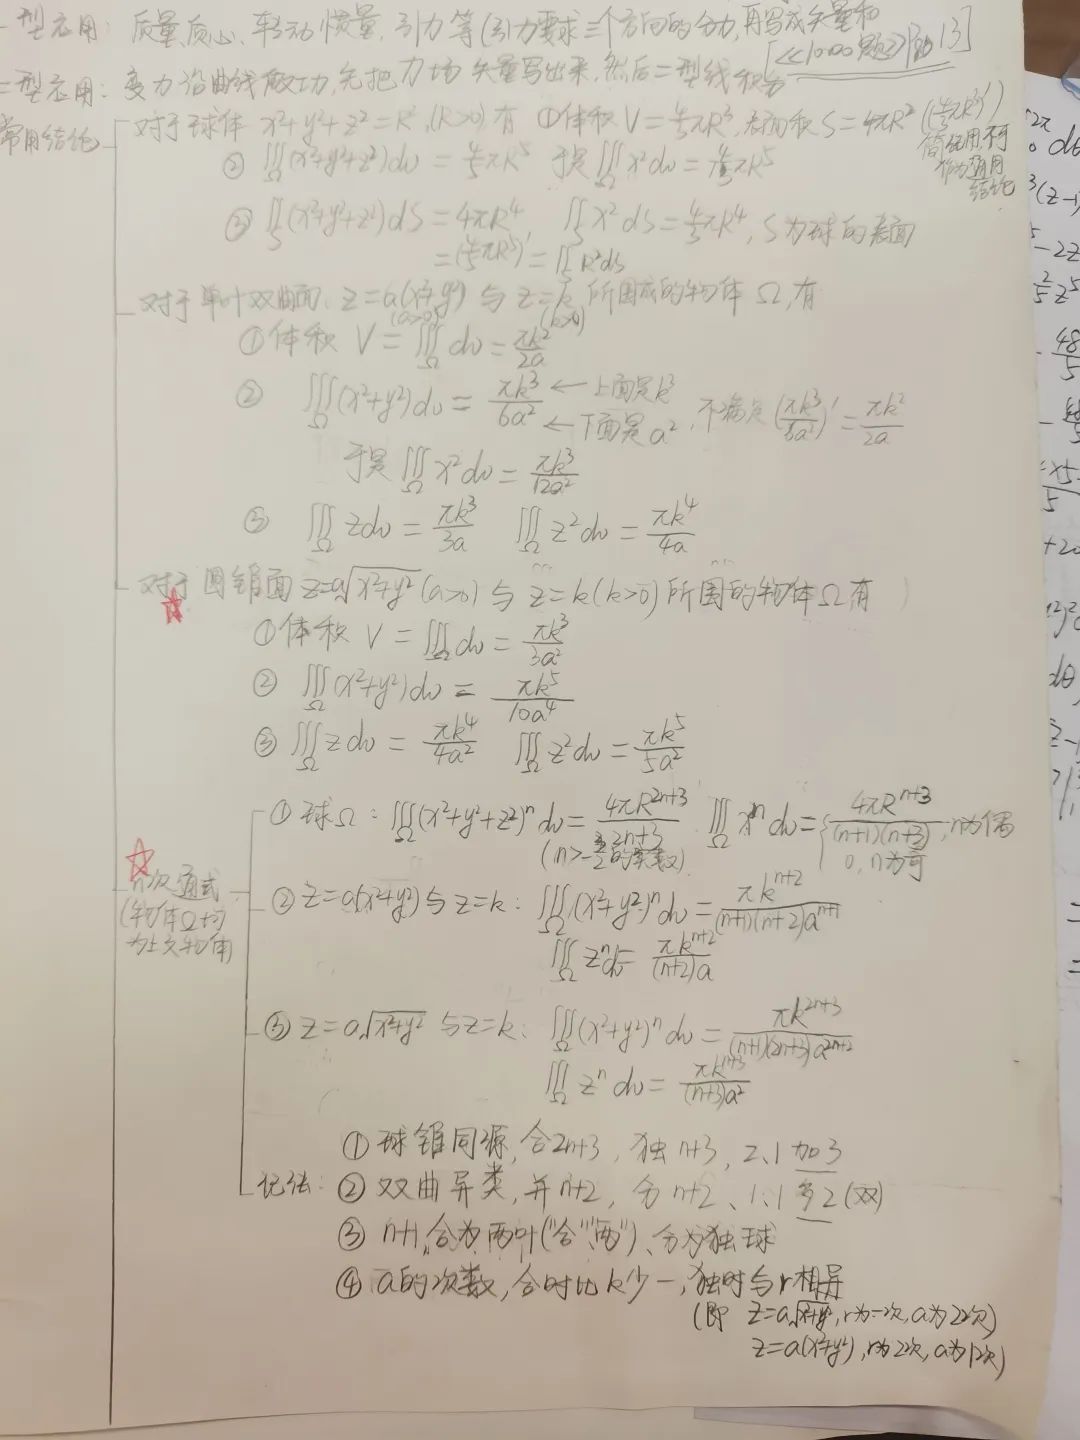 一型应用: 质量,质心,转动惯量,引力等(引力要求三个方向的分力,再写成矢量和
[<<1000题>>P 13]
二型应用: 变力沿曲线做功,先把力场矢量写出来,然后二型线积分
常用结论
对于球体 x²+y²+z²=R²,(R>0)有 ①体积V=4/3πR³,表面积S=4πR² (4/3πR³)'
简便用,不可作为通用结论
② ∭(x²+y²+z²)dv=4/5πR⁵ 于是∭x²dv=4/15πR⁵
③ ∬(x²+y²+z²)dS=4πR⁴, ∬x²dS=4/3πR⁴, S为球的表面
=(4/5πR⁵)'=∬R²dS
对于单叶双曲面, z=a(x²+y²)与z=k所围成的物体Ω,有
(a>0) (k>0)
①体积 V=∭_Ω dv=πk²/2a
② ∭_Ω(x²+y²)dv=πk³/6a² ←上面是k³
←下面是a², 不满足(πk³/6a²)'=πk²/2a
于是∭_Ω x²dv=πk³/12a²
③ ∭_Ω zdv=πk³/3a ∭_Ω z²dv=πk⁴/4a
对于圆锥面z=a√(x²+y²)(a>0)与z=k(k>0)所围的物体Ω有
①体积 V=∭_Ω dv=πk³/3a²
② ∭_Ω(x²+y²)dv=πk⁵/10a⁴
③ ∭_Ω zdv=πk⁴/4a² ∭_Ω z²dv=πk⁵/5a²
n次通式
(物体Ω均
为上文物体)
①球Ω: ∭_Ω(x²+y²+z²)ⁿdv=4πR²ⁿ⁺³/2n+3 ∭_Ω xⁿdv={4πRⁿ⁺³/(n+1)(n+3), n为偶
(n>-3/2的实数) 0, n为奇
② z=a(x²+y²)与z=k: ∭_Ω(x²+y²)ⁿdv=πkⁿ⁺²/(n+1)(n+2)aⁿ⁺¹
∭_Ω zⁿdv=πkⁿ⁺²/(n+2)a
③ z=a√(x²+y²)与z=k: ∭_Ω(x²+y²)ⁿdv=πk²ⁿ⁺³/(n+1)(2n+3)a²ⁿ⁺²
∭_Ω zⁿdv=πkⁿ⁺³/(n+3)a²
记法: ①球锥同源,合2n+3, 独n+3, 2、1加3
②双曲异类,并n+2, 分n+2、1:1多2(双)
③n+1,合为两叶("合""两")、分为独球
④a的次数,合时比k少一,独时与r相异
(即 z=a√(x²+y²),r为一次,a为2次)
z=a(x²+y²),r为2次,a为1次)